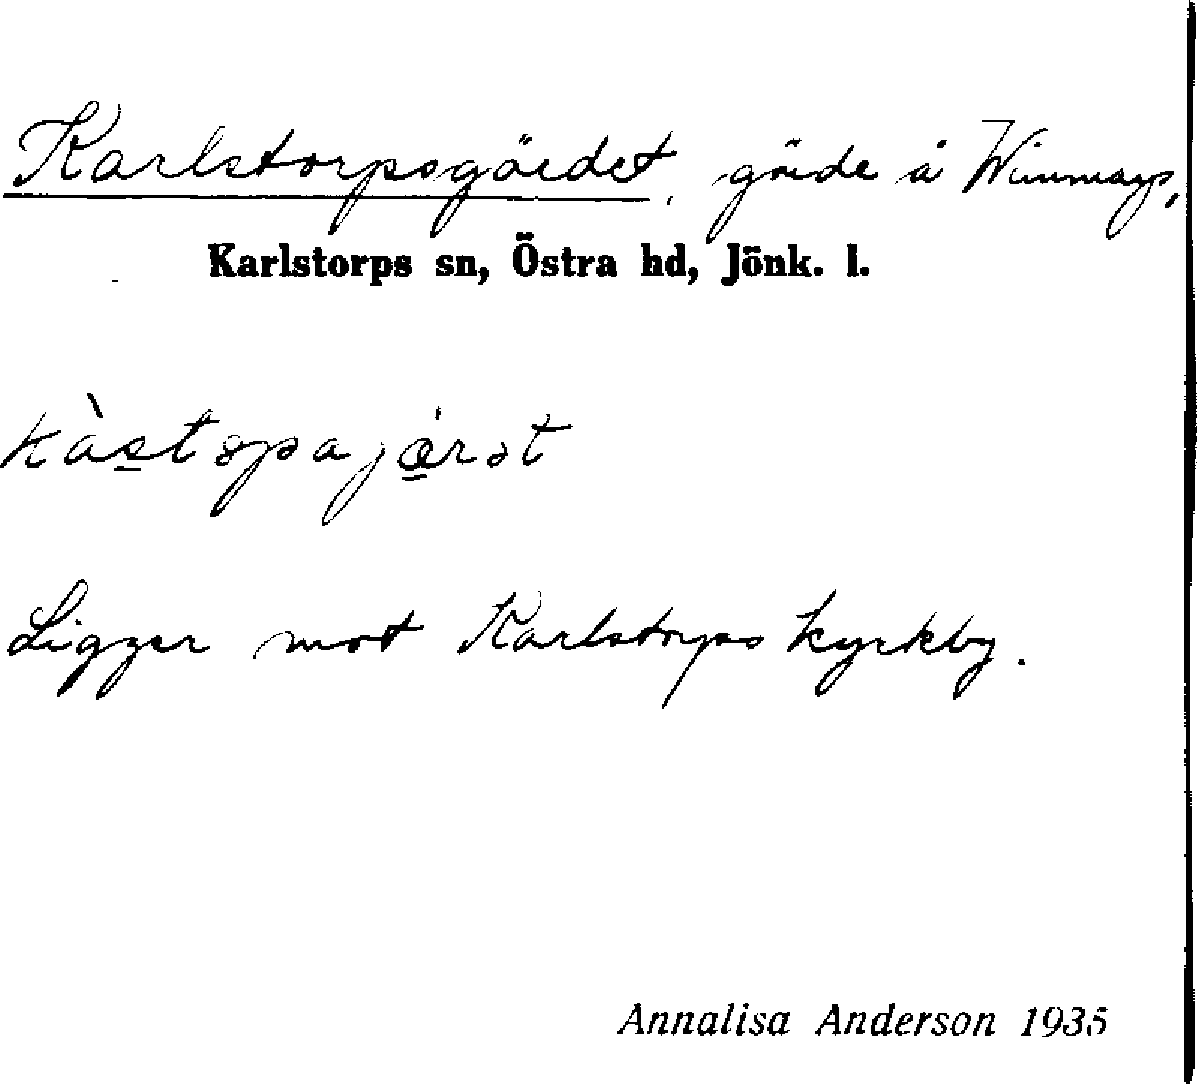 Karlstorpsgärdet, gärde å Winmarp,
Karlstorps sn, Östra hd, Jönk. l.
Ligger mot Karlstorps kyrkby.
Annalisa Anderson 1935